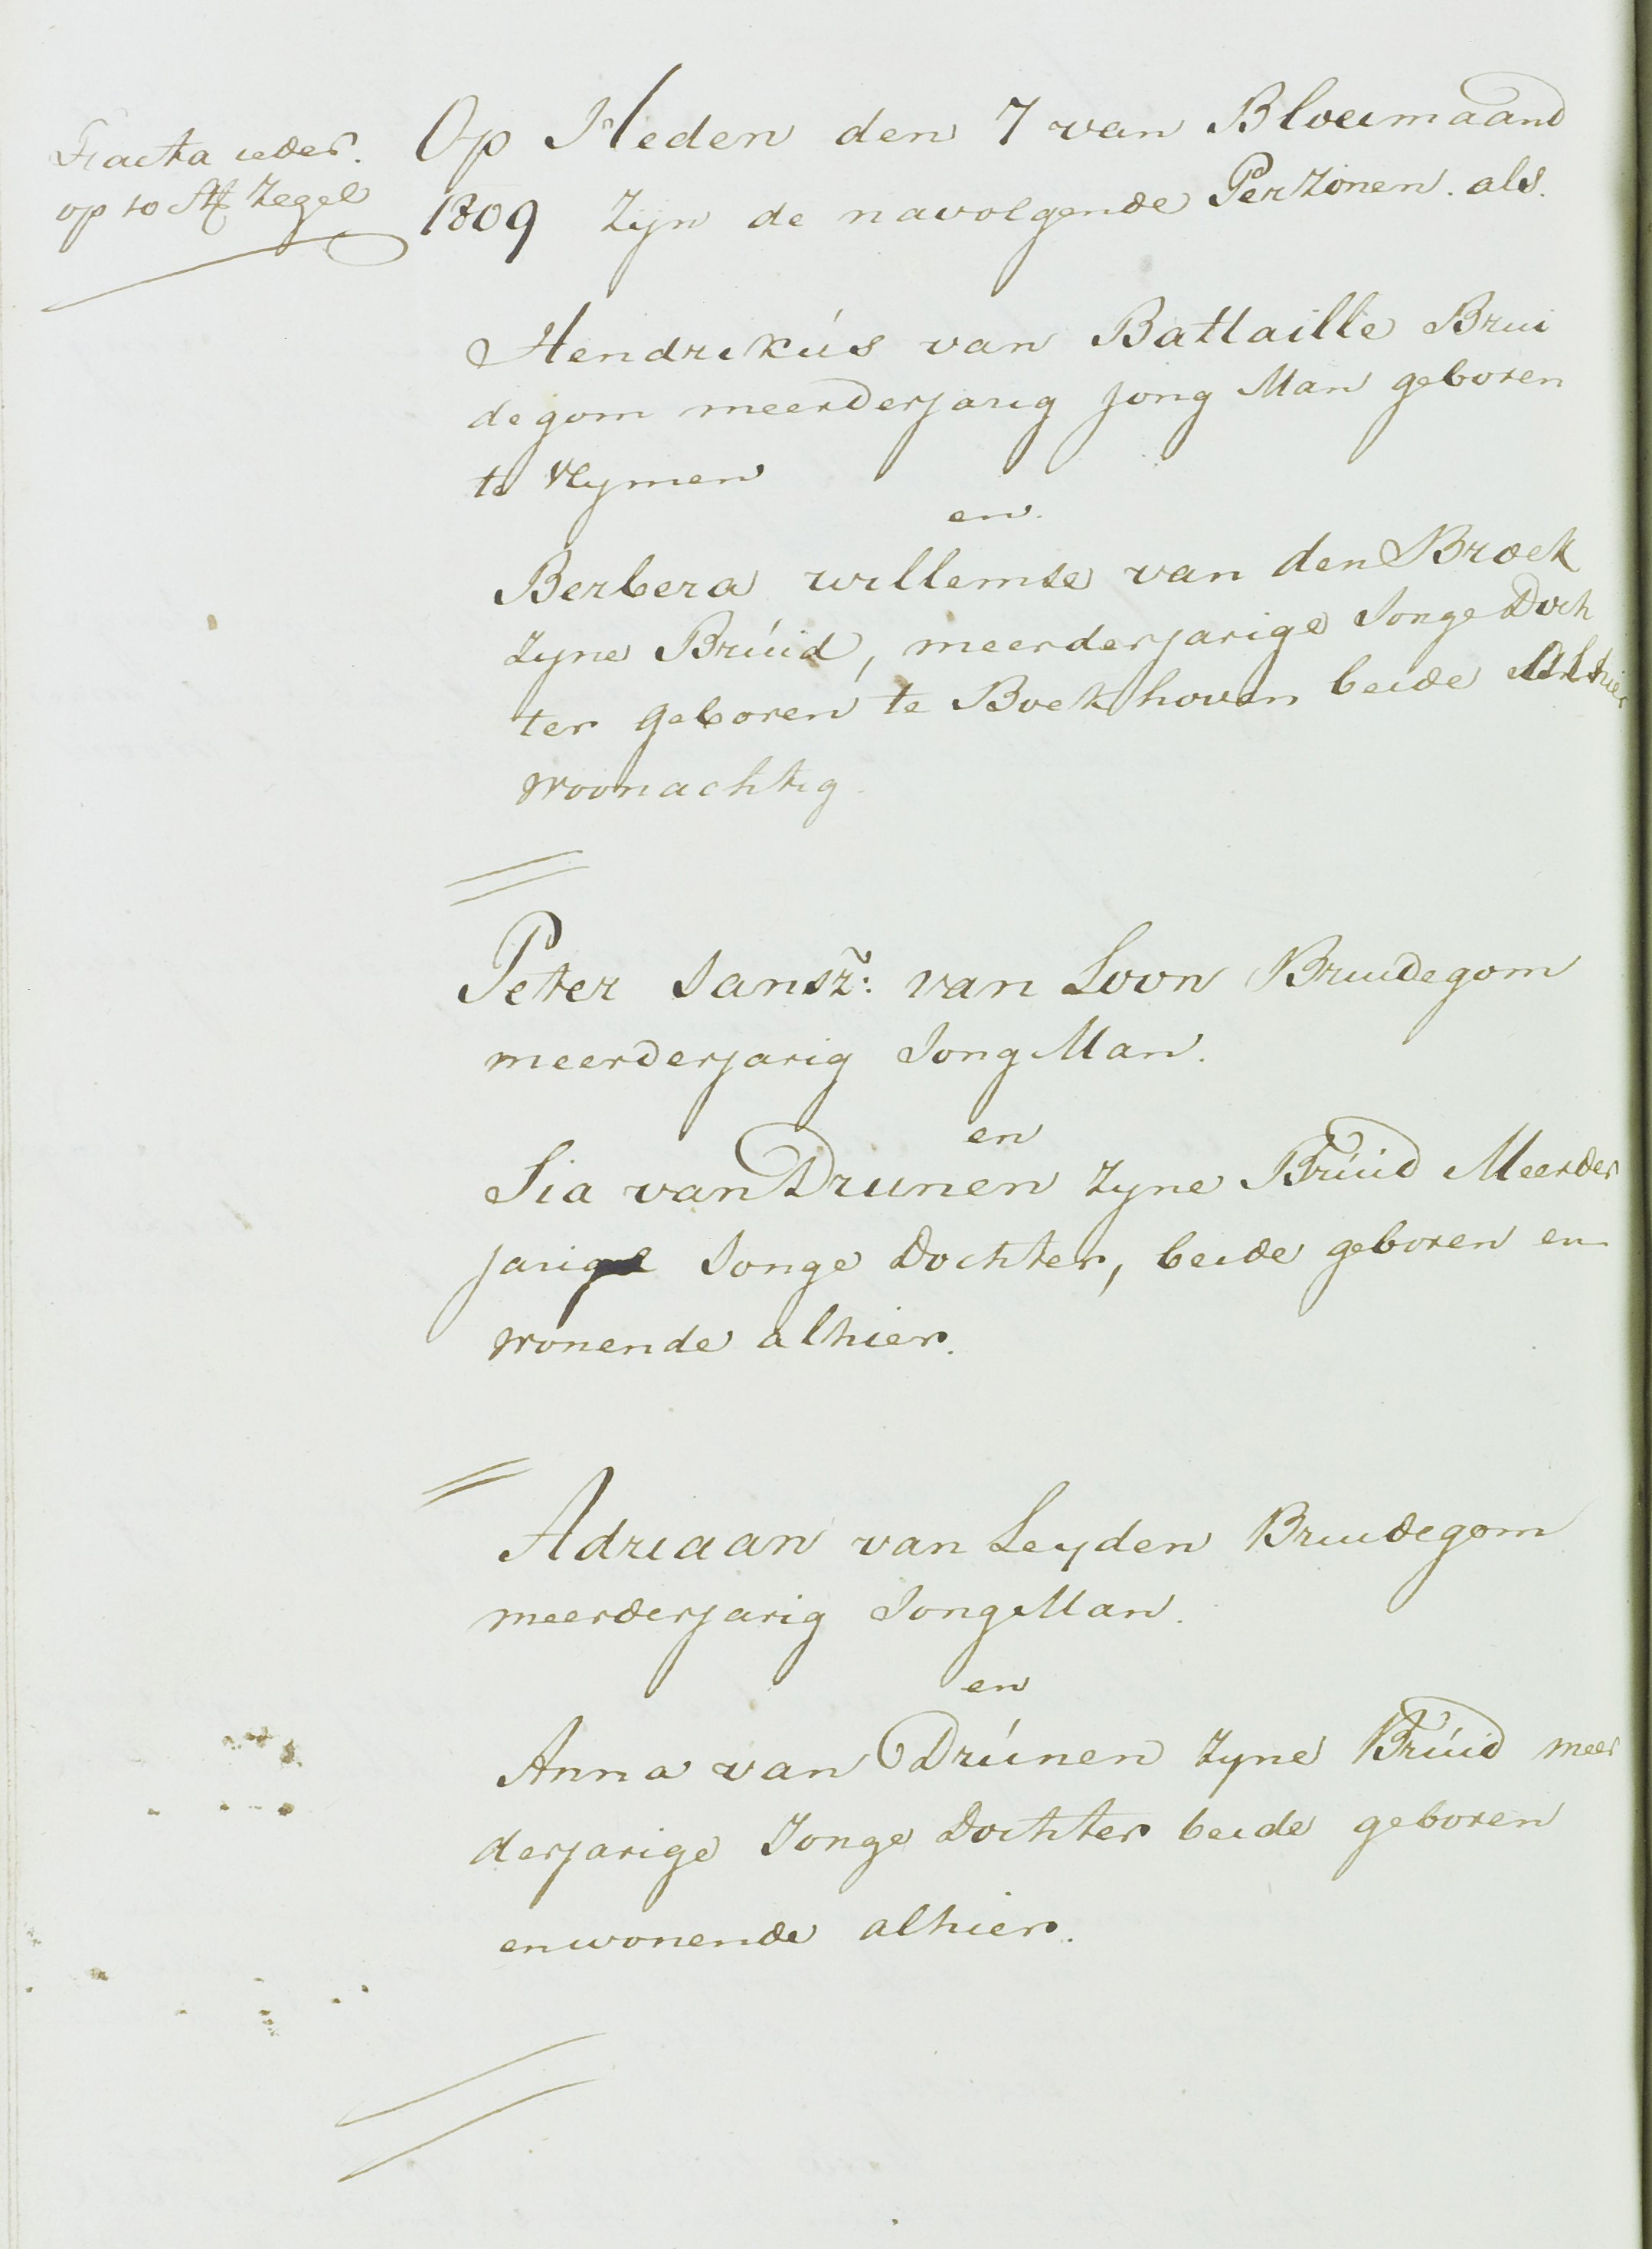 Fiacta ieder.
op 10 St Zegel
Op Heden den 7 van Bloeimaand
1809 Zijn de navolgende Perzonen. als.
Hendrikús van Battaille Brui
degom meerderjarig Jong Man geboren
te Vlymen
en.
Berbera willemse van den Broek
Zyne Brúid, meerderjarige Jonge Doch
ter geboren te Boekhoven beide Alhier
woonachtig.
Peter Jansz: van Loon Bruidegom
meerderjarig Jong Man.
en
Sia van Drunen Zyne Brúid Meerder
jarige Jonge Dochter, beide geboren en
wonende alhier.
Adriaan van Leyden Bruidegom
meerderjarig Jong Man.
en
Anna van Drúnen Zyne Brúid meer
derjarige Jonge Dochter beide geboren
en wonende alhier.